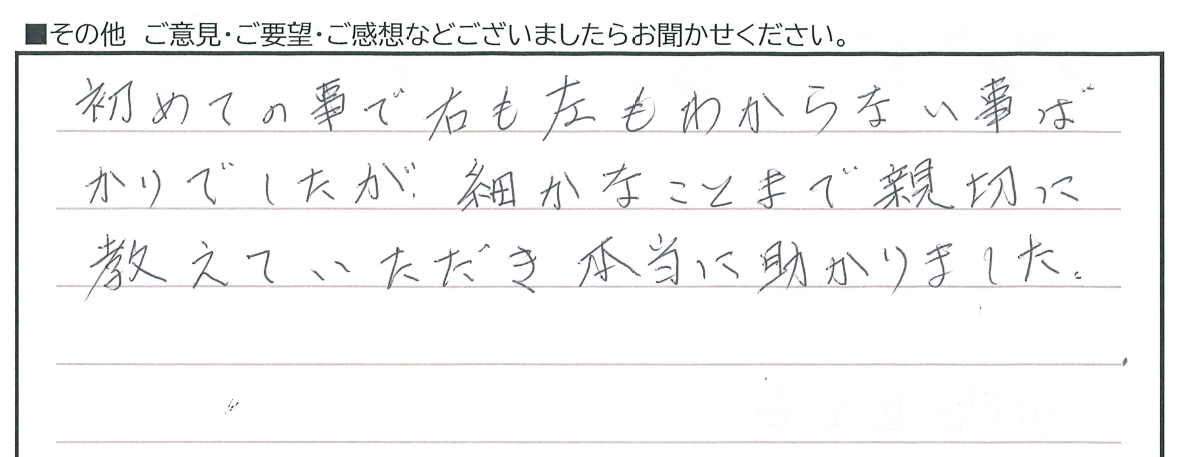 ■その他 ご意見・ご要望・ご感想などございましたらお聞かせください。
初めての事で右も左もわからない事ば
かりでしたが、細かなことまで親切に
教えていただき本当に助かりました。